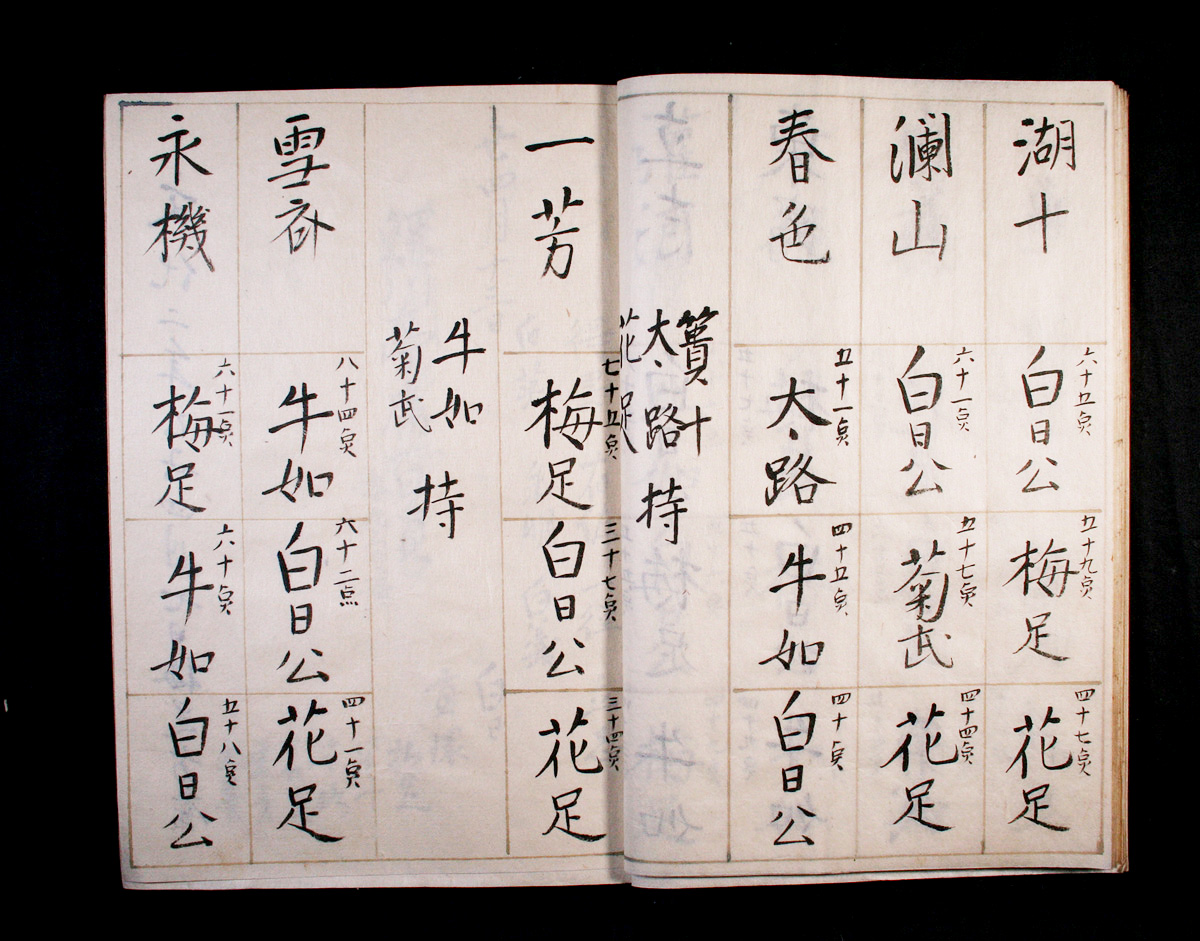 湖十
六十五点
白日公
五十九点
梅足
四十七点
花足
瀾山
六十一点
白日公
五十七点
菊武
四十四点
花足
春色
五十一点
大路
四十五点
牛如
四十点
白日公
十
大路
花足
持
一芳
七十五点
梅足
三十七点
白日公
三十四点
花足
牛如
菊武
持
雪
八十四点
牛如
六十二点
白日公
四十一点
花足
永機
六十一点
梅足
六十点
牛如
五十八点
白日公